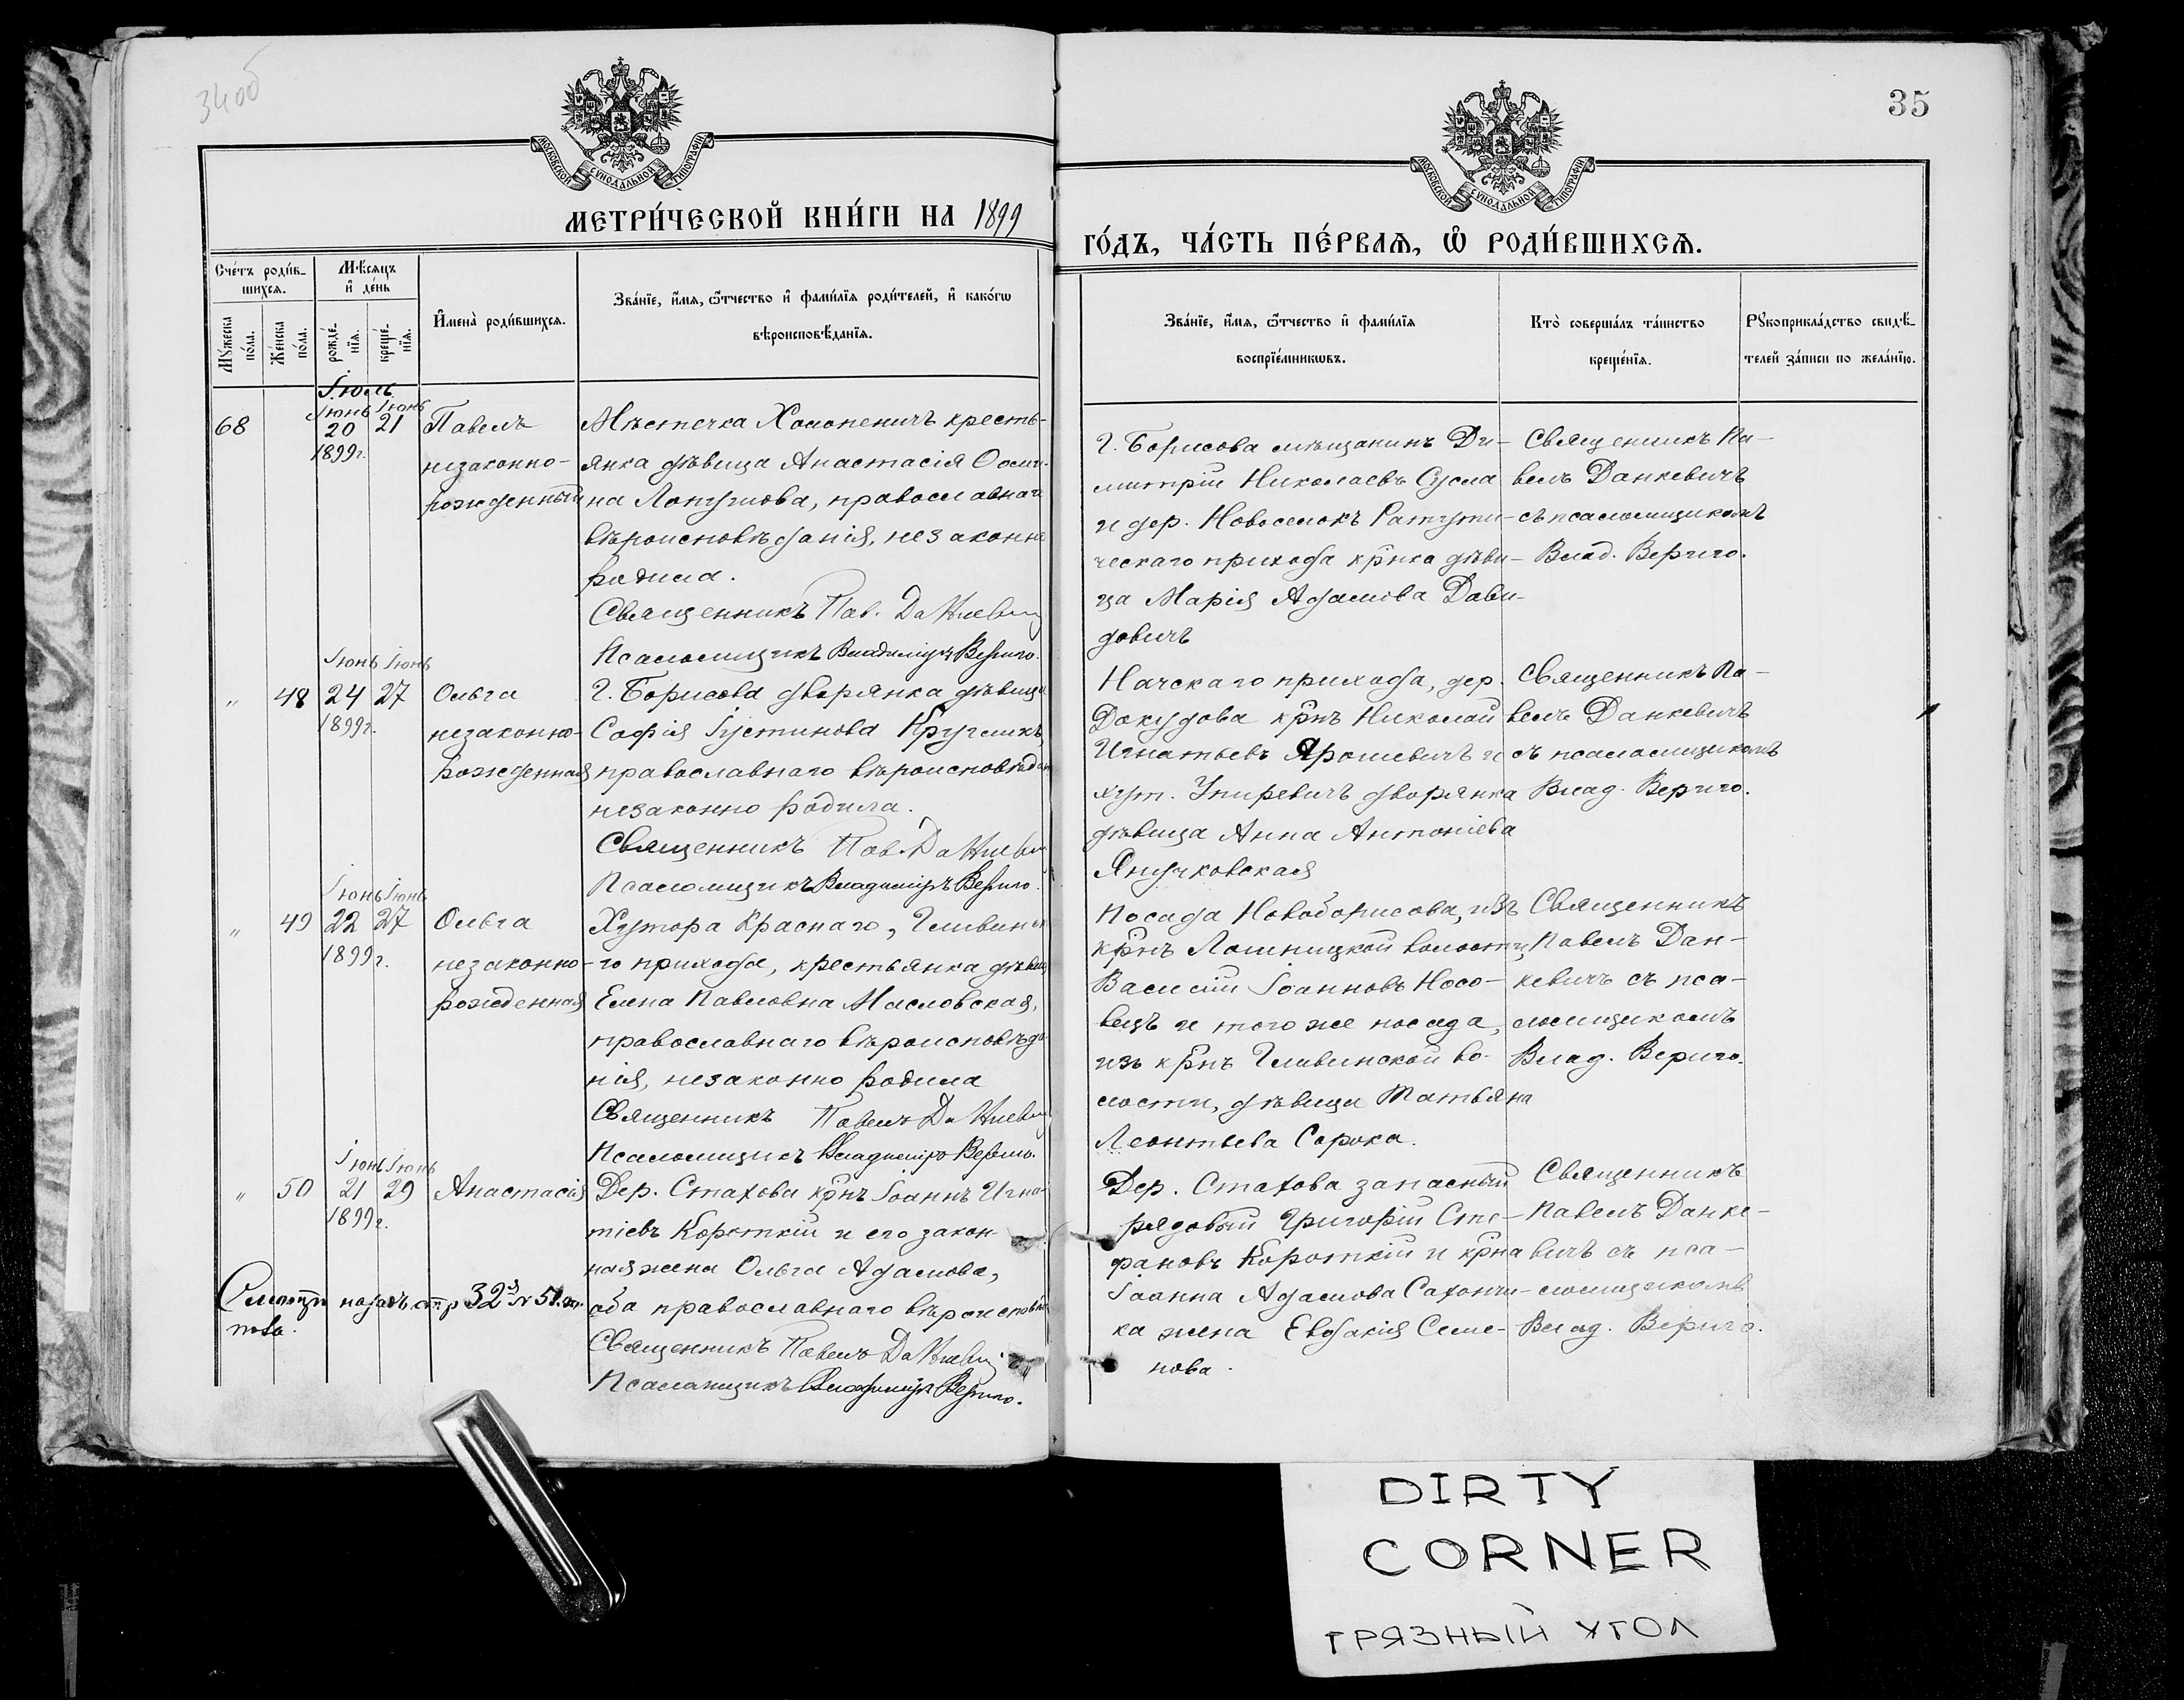 34об
35
МОСКОВСКОЙ СѴНОДАЛЬНОЙ ТИПОГРАФІИ
МОСКОВСКОЙ СѴНОДАЛЬНОЙ ТИПОГРАФІИ
МЕТРИ́ЧЕСКОЙ КНИ́ГИ НА 1899
ГО́ДЪ, ЧА́СТЬ ПЕ́РВАѦ, Ѽ РОДИ́ВШИХСѦ.
Сче́тъ роди́в-
шихсѧ.
Мѣ́сѧцъ
и҆ де́нь
Мꙋ́жеска
по́ла.
Же́нска
по́ла.
рожде́-
нїѧ.
креще́-
нїѧ.
И҆мена̀ роди́вшихсѧ.
Зва́нїе, и҆́мѧ, ѻ҆́тчество и҆ фами́лїѧ роди́телей, и҆ како́гѡ
вѣроисповѣ́данїѧ.
Зва́нїе, и҆́мѧ, ѻ҆́тчество и҆ фами́лїѧ
воспрїе́мникѡвъ.
Кто̀ соверша́лъ та́инство
креще́нїѧ.
Рꙋкоприкла́дство свидѣ́-
телей за́писи по жела́нїю.
Іюль
Іюнь Іюнь
68
20 21
1899г.
Павелъ
незаконно-
рожденный
Мѣстечка Холопеничъ кресть-
янка дѣвица Анастасія
на православнаго
вѣроисповѣданія, незаконно
родила.
Священникъ Пав. Данкевичъ
Псаломщикъ Владиміръ Вериго.
Г. Борисова мѣщанинъ Ди-
митрій Николаевъ Сусла
и дер. Новоселокъ Ратути-
ческаго прихода кр-нка дѣви-
ца Марія Адамова Дави-
довичъ
Священникъ Па-
велъ Данкевичъ
съ псаломщикомъ
Влад. Вериго.
Іюнь Іюнь
" 48 24 27
1899г.
Ольга
незаконно-
рожденная
Г. Борисова дворянка дѣвица
Софія Іустинова Кругликъ,
православнаго вѣроисповѣдан
незаконно родила.
Священникъ Пав. Данкевичъ
Псаломщикъ Владиміръ Вериго.
Начскаго прихода, дер.
Докудова кр-нъ Николай
Игнатьевъ Ярошевичъ и
хут. Упиревичъ дворянка
дѣвица Анна Антоніева
Янучковская
Священникъ Па-
велъ Данкевичъ
съ псаломщикомъ
Влад. Вериго.
Іюнь Іюнь
" 49 22 27
1899г.
Ольга
незаконно-
рожденная
Хутора Краснаго, Гливинска
го прихода, крестьянка дѣвица
Елена Павловна Масловская,
православнаго вѣроисповѣда
нія, незаконно родила
Священникъ Павелъ Данкевичъ
Псаломщикъ Владиміръ Вериго.
Посада Новоборисова, изъ
кр-нъ Лошницкой волости,
Василій Іоанновъ Носо-
вецъ и того же посада,
изъ кр-нъ Гливинской во-
лости, дѣвица Татьяна
Леонтьева Сорока.
Священникъ
Павелъ Дан-
кевичъ съ пса-
ломщикомъ
Влад. Вериго.
Іюнь Іюнь
" 50 21 29
1899г.
Анастасія
Дер. Стахова кр-нъ Іоаннъ Игна-
тіевъ Короткій и его закон-
ная жена Ольга Адамова,
оба православнаго вѣроисповѣд
Священникъ Павелъ Данкевичъ
Псаломщикъ Владиміръ Вериго.
Дер. Стахова запасный
рядовой Григорій Сте-
фановъ Короткій и кр-на
Іоанна Адамова Сахончи-
ка жена Евдакія Семе-
нова.
Священникъ
Павелъ Данке-
вичъ съ пса-
ломщикомъ
Влад. Вериго.
Смотри назадъ стр 32 № 51
DIRTY
CORNER
ГРЯЗНЫЙ УГОЛ